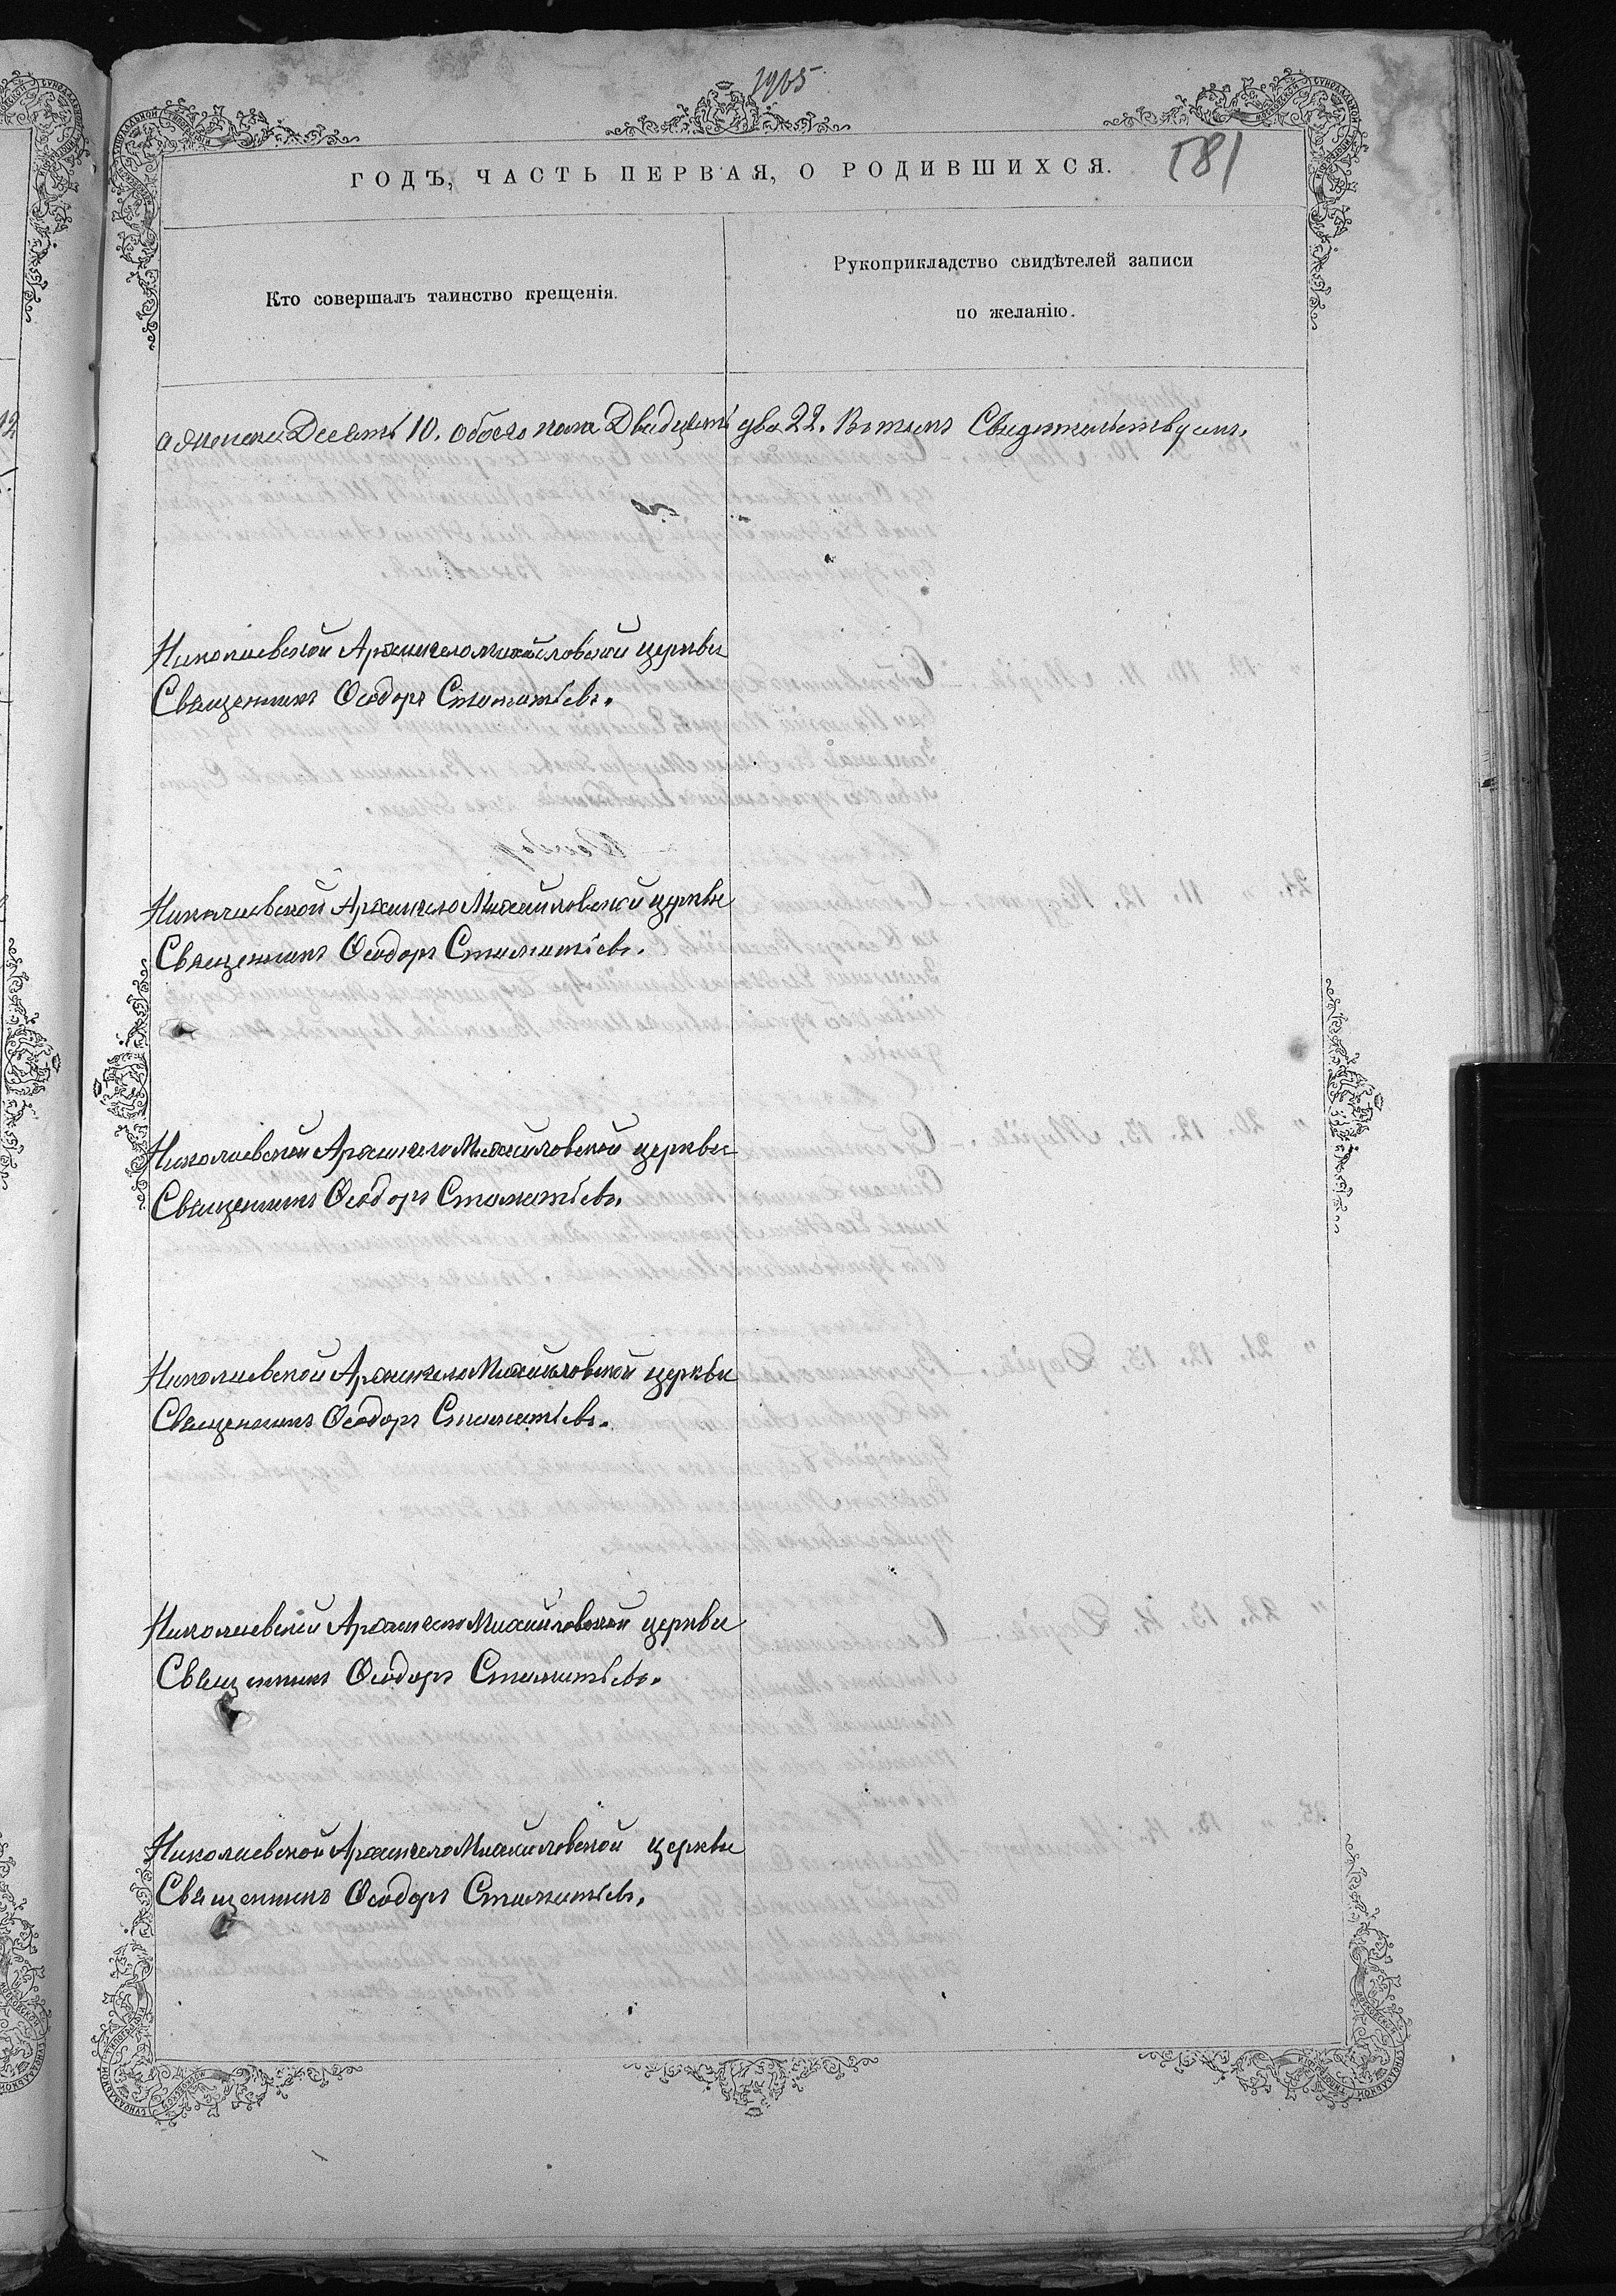 1905
581
ГОДЪ, ЧАСТЬ ПЕРВАЯ, О РОДИВШИХСЯ.
Кто совершалъ таинство крещенія.
Рукоприкладство свидѣтелей записи
по желанію.
а женска Десять 10. обоего пола Двадцать два 22. Въ томъ Свидѣтельствуемъ.
Николаевской Архангело Михайловской церкви
Священникъ Ѳеодоръ Стаматіевъ.
Николаевской Архангело Михайловской церкви
Священникъ Ѳеодоръ Стаматіевъ.
Николаевской Архангело Михайловской церкви
Священникъ Ѳеодоръ Стаматіевъ.
Николаевской Архангело Михайловской церкви
Священникъ Ѳеодоръ Стаматіевъ.
Николаевской Архангело Михайловской церкви
Священникъ Ѳеодоръ Стаматіевъ.
Николаевской Архангело Михайловской церкви
Священникъ Ѳеодоръ Стаматіевъ.